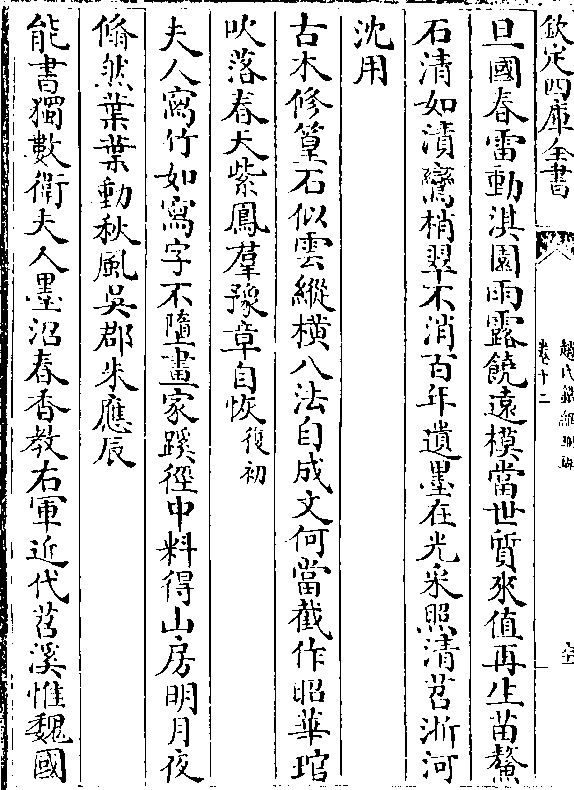 欽定四庫全書
趙氏鐵網珊瑚
卷十二
旦國春雷動淇園雨露饒遠模當世質來值再生苗鰲
石清如漬鸞梢翠不消百年遺墨在光采照清苕浙河
沈用
古木修篁石似雲縱横八法自成文何當截作昭華琯
吹落春天紫鳳羣豫章自恢復初
夫人寫竹如寫字不墮畫家蹊徑中料得山房明月夜
翛然葉葉動秋風吳郡朱應辰
能書獨數衛夫人墨沼春香教右軍近代苕溪惟魏國